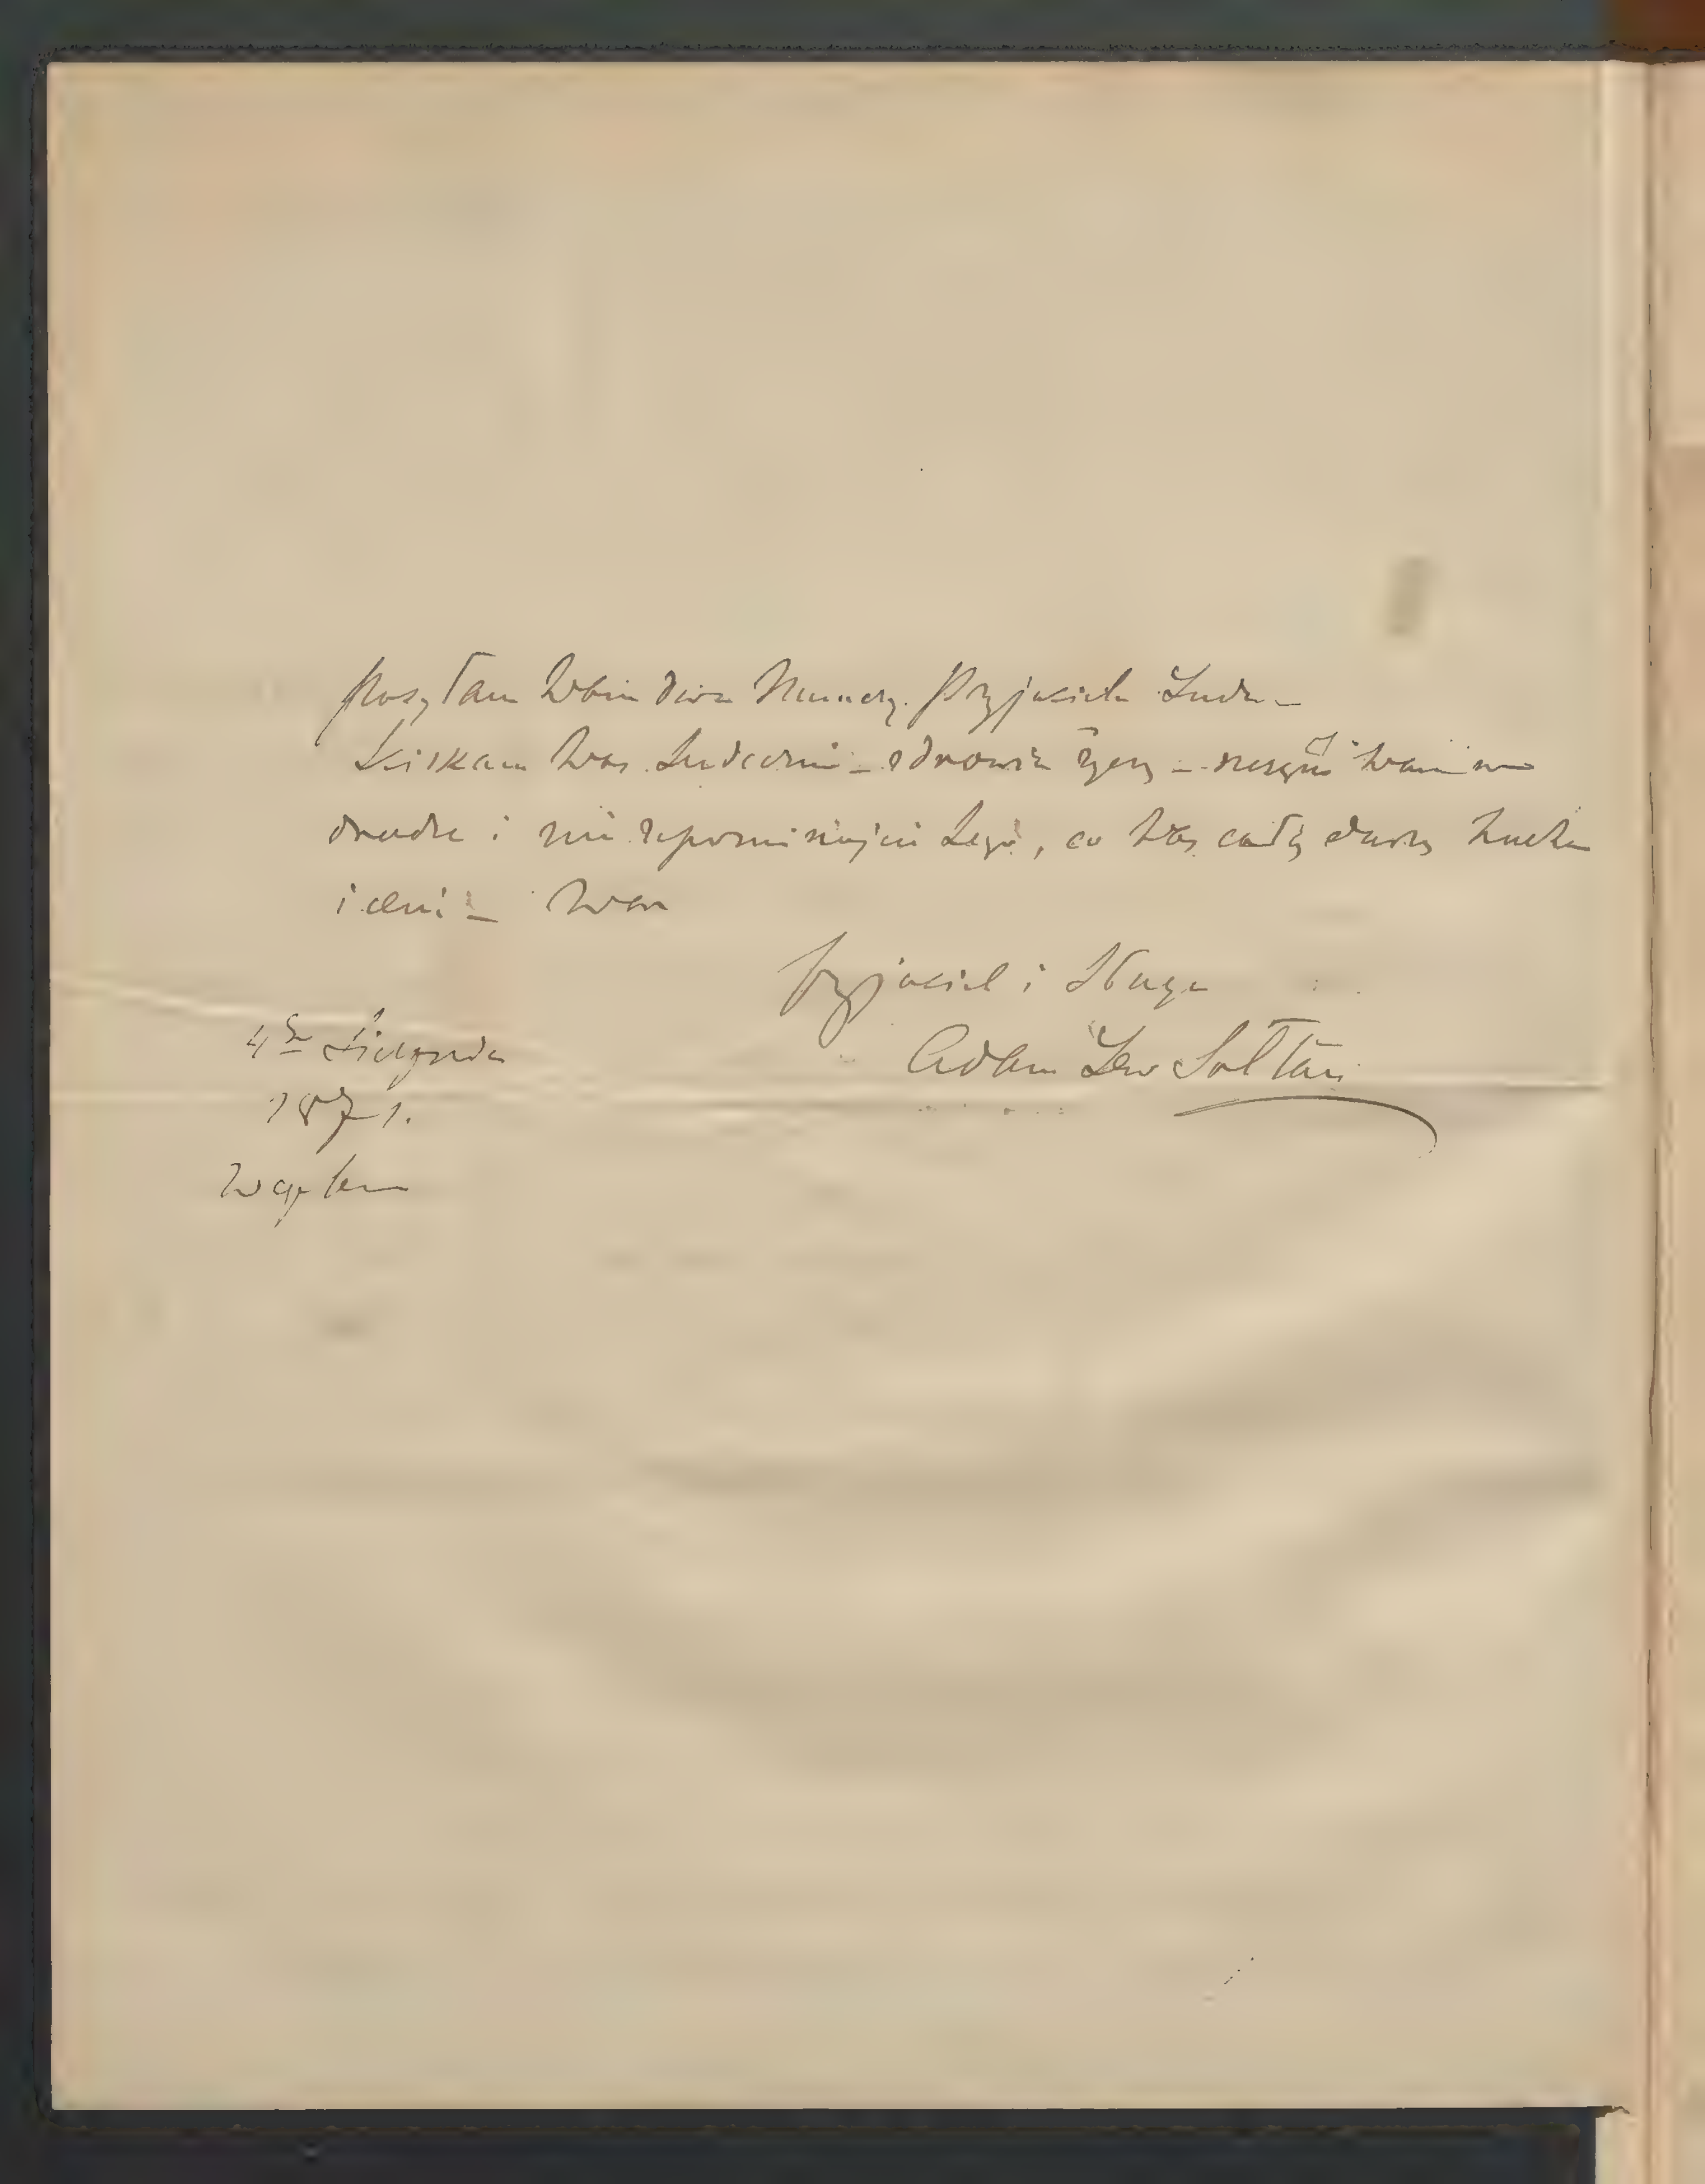 posyłam Wam dwa Numery Przyjaciela Ludu –
Sciskam Was Serdecznie – zdrowia życzę – szczęść Wam na
drodze i nie zapominajcie tego, co Was całą duszą kocha
i ceni – Wasz
przyjaciel i Sługa
Adam Lew Sołtan
4go Listopada
1871.